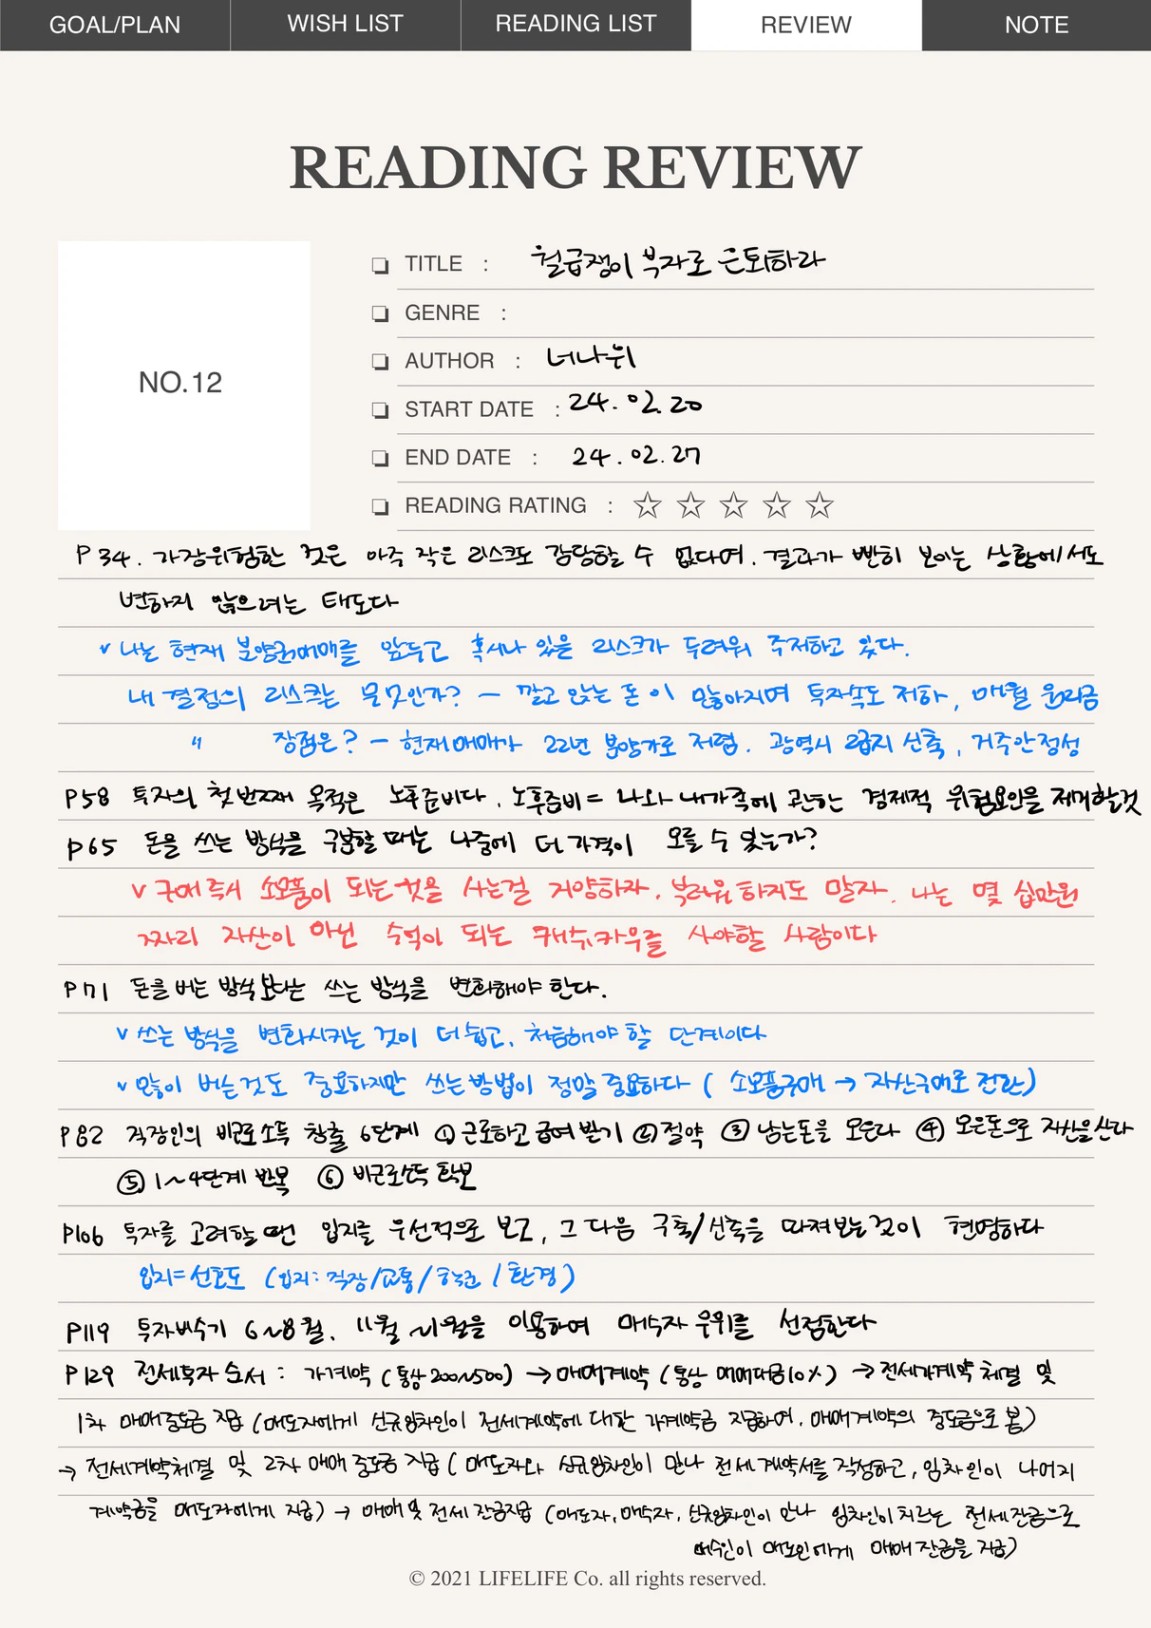 GOAL/PLAN WISH LIST READING LIST REVIEW NOTE
READING REVIEW
NO.12
TITLE : 월급쟁이 부자로 은퇴하라
GENRE :
AUTHOR : 너나위
START DATE : 24.02.20
END DATE : 24.02.27
READING RATING : ☆ ☆ ☆ ☆ ☆
P 34. 가장위험한 것은 아주 작은 리스크도 감당할 수 없다며, 결과가 뻔히 보이는 상황에서도
변하지 않으려는 태도다
v 나는 현재 분양권매매를 앞두고 혹시나 있을 리스크가 두려워 주저하고 있다.
내 결정의 리스크는 무엇인가? - 깔고 앉는 돈이 많아지며 투자속도 저하, 매월 원리금
" 장점은? - 현재매매가 22년 분양가로 저렴. 광역시 2급지 신축, 거주안정성
P58 투자의 첫번째 목적은 노후준비다. 노후준비 = 나와 내가족에 관한 경제적 위험요인을 제거할것
P65 돈을 쓰는 방식을 구분할 때는 나중에 더 가격이 오를 수 있는가?
v 구매즉시 소모품이 되는것을 사는걸 지양하자. 부러워 하지도 말자. 나는 몇 십만원
짜리 자산이 아닌 수억이 되는 캐쉬카우를 사야할 사람이다
P71 돈을 버는 방식보다는 쓰는 방식을 변화해야 한다.
v 쓰는 방식을 변화시키는 것이 더 쉽고, 처음해야 할 단계이다
v 많이 버는것도 중요하지만 쓰는방법이 정말 중요하다 ( 소모품구매 → 자산구매로 전환)
P82 직장인의 비근로소득 창출 6단계 ① 근로하고 급여 받기 ② 절약 ③ 남는돈을 모은다 ④ 모은돈으로 자산을산다
⑤ 1~4단계 반복 ⑥ 비근로소득 확보
P106 투자를 고려할 땐 입지를 우선적으로 보고, 그 다음 구축/신축을 따져보는것이 현명하다
입지=선호도 (입지: 직장/교통/학군/환경)
P119 투자비수기 6~8월, 11월~1월을 이용하여 매수자 우위를 선점한다
P129 전세투자 순서 : 가계약 (통상 200~500) → 매매계약 (통상 매매대금10%) → 전세가계약 체결 및
1차 매매중도금 지급 (매도자에게 신규임차인이 전세계약에 대한 가계약금 지급하여, 매매계약의 중도금으로 봄)
→ 전세계약체결 및 2차 매매 중도금 지급 ( 매도자와 신규임차인이 만나 전세계약서를 작성하고, 임차인이 나머지
계약금을 매도자에게 지급) → 매매 및 전세 잔금지급 (매도자, 매수자, 신규임차인이 만나 임차인이 치르는 전세잔금으로
매수인이 매도인에게 매매 잔금을 지급)
© 2021 LIFELIFE Co. all rights reserved.